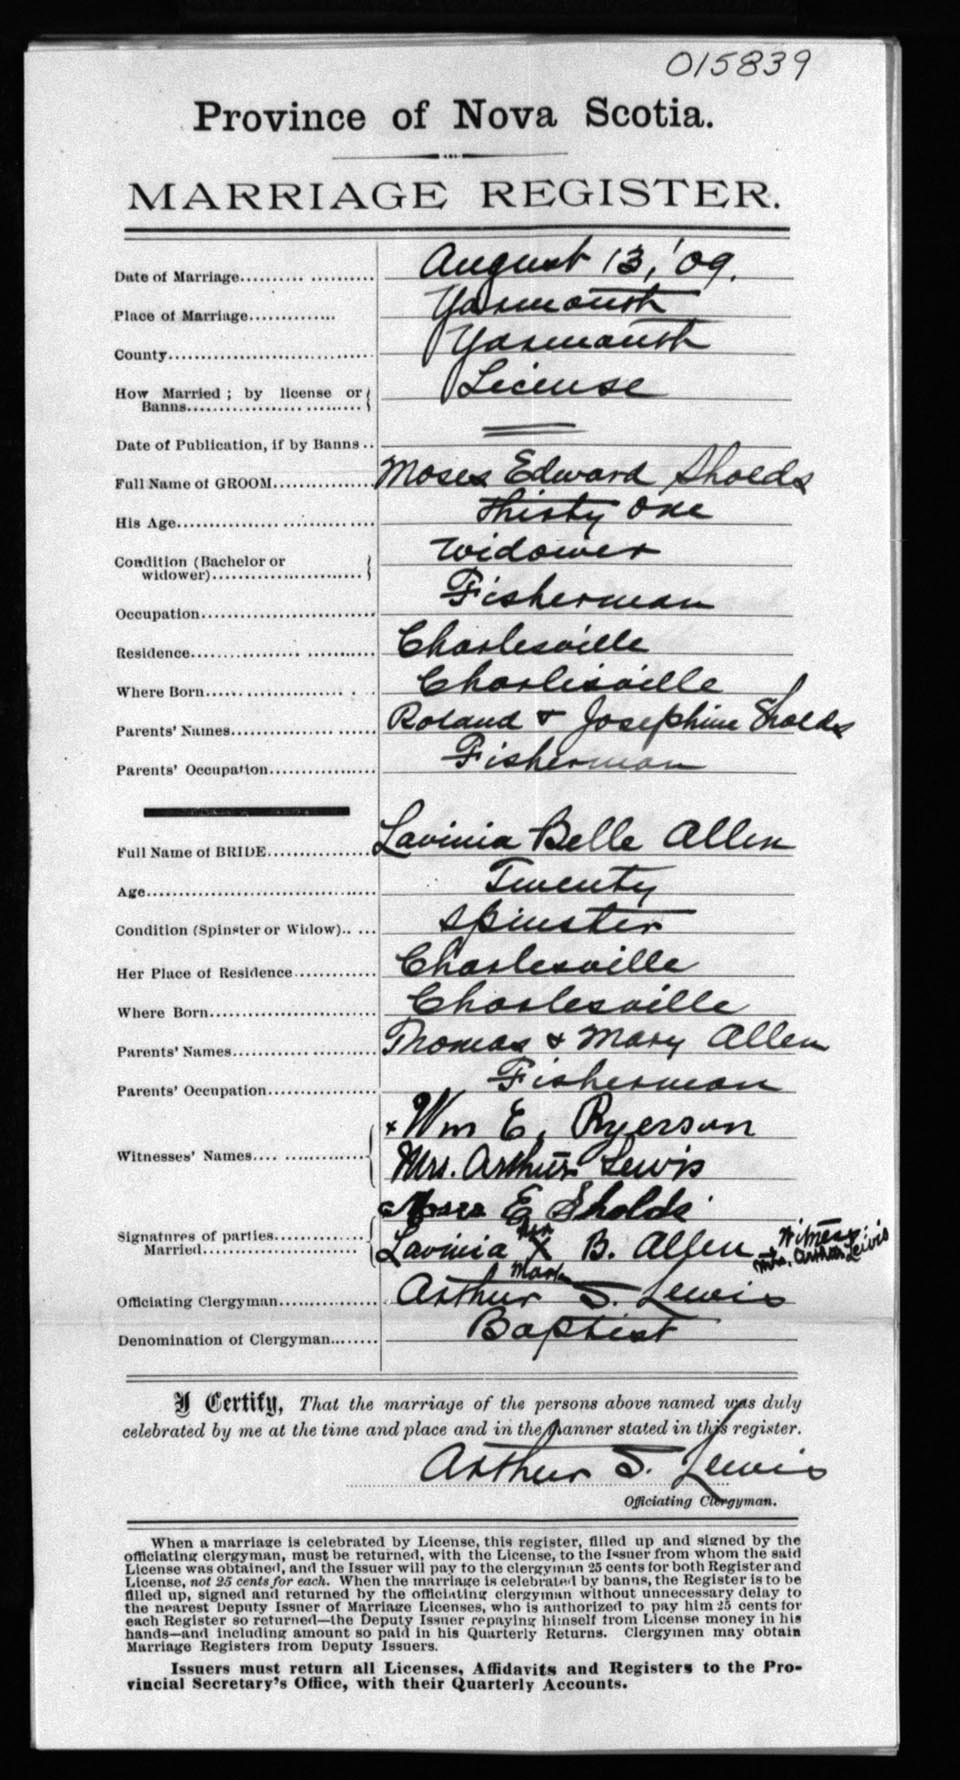 015839
Province of Nova Scotia.
MARRIAGE REGISTER.
Date of Marriage.................... August 13, '09.
Place of Marriage.............. Yarmouth
County.............................. Yarmouth
How Married ; by license or
Banns.......................... License
Date of Publication, if by Banns ..
Full Name of GROOM............... Moses Edward Sholds
His Age............................. Thirty One
Condition (Bachelor or
widower)...................... Widower
Occupation.......................... Fisherman
Residence........................... Charlesville
Where Born........................ Charlisville
Parents' Names..................... Roland & Josephine Sholds
Parents' Occupation................ Fisherman
Full Name of BRIDE............... Lavinia Belle Allen
Age................................... Twenty
Condition (Spinster or Widow)..... Spinster
Her Place of Residence............ Charlesville
Where Born........................ Charlesville
Parents' Names..................... Thomas & Mary Allen
Parents' Occupation............... Fisherman
Witnesses' Names.................. x Wm E. Ryerson
Mrs. Arthur Lewis
Signatures of parties..............
Married........................
Moses E Sholds
Lavinia her X mark B. Allen Witness Mrs. Arthur Lewis
Officiating Clergyman.............. Arthur S. Lewis
Denomination of Clergyman....... Baptist
I Certify, That the marriage of the persons above named was duly
celebrated by me at the time and place and in the manner stated in this register.
Arthur S. Lewis
Officiating Clergyman.
When a marriage is celebrated by License, this register, filled up and signed by the
officiating clergyman, must be returned, with the License, to the Issuer from whom the said
License was obtained, and the Issuer will pay to the clergyman 25 cents for both Register and
License, not 25 cents for each. When the marriage is celebrated by banns, the Register is to be
filled up, signed and returned by the officiating clergyman without unnecessary delay to
the nearest Deputy Issuer of Marriage Licenses, who is authorized to pay him 25 cents for
each Register so returned—the Deputy Issuer repaying himself from License money in his
hands—and including amount so paid in his Quarterly Returns. Clergymen may obtain
Marriage Registers from Deputy Issuers.
Issuers must return all Licenses, Affidavits and Registers to the Pro-
vincial Secretary's Office, with their Quarterly Accounts.